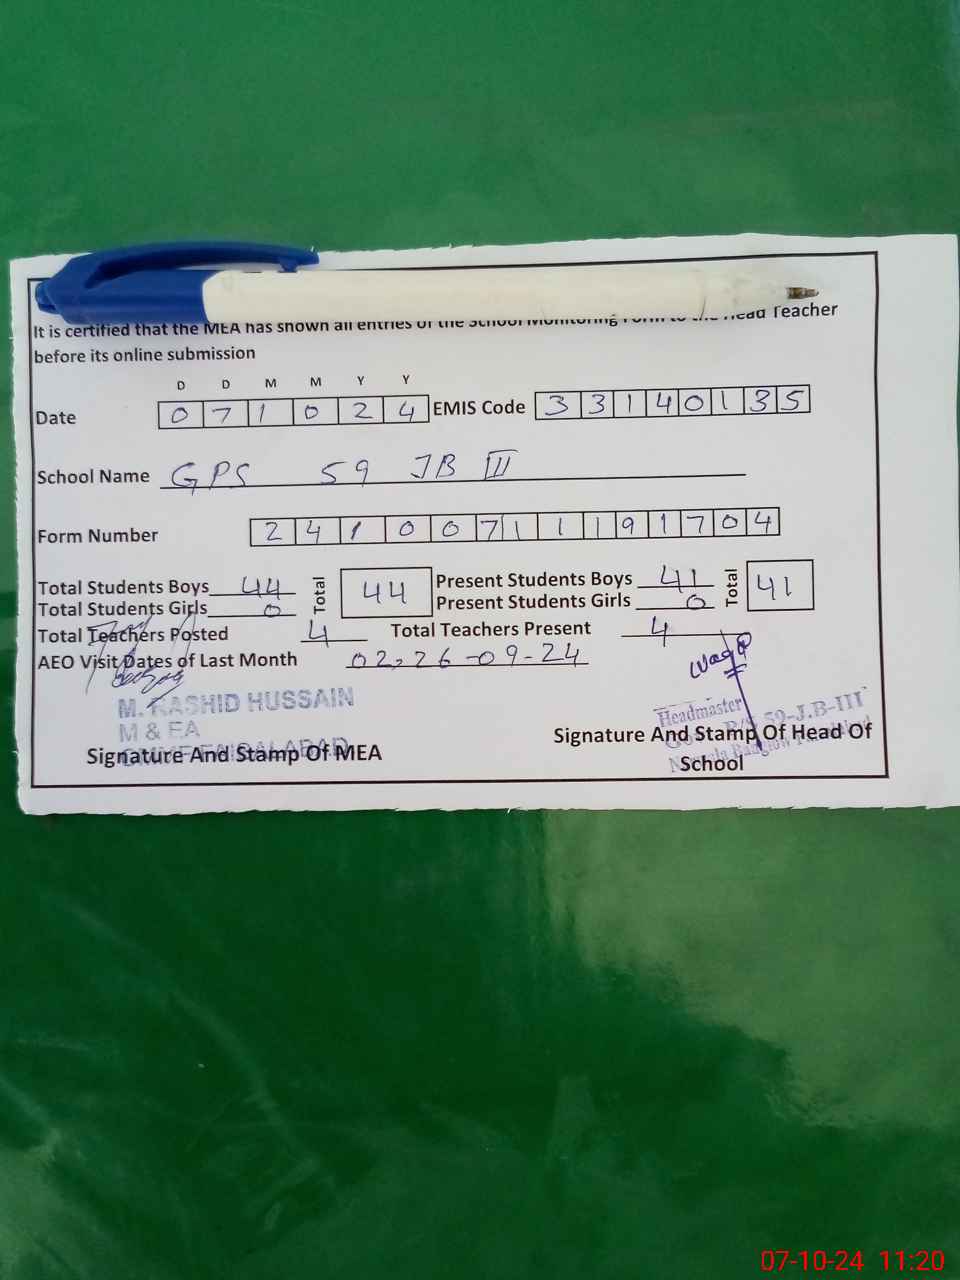 It is certified that the MEA has shown all entries of the School Monitoring Form to the Head Teacher
before its online submission
D D M M Y Y
Date 0 7 1 0 2 4 EMIS Code 3 3 1 4 0 1 3 5
School Name GPS 59 JB III
Form Number 2 4 1 0 0 7 1 1 1 9 1 7 0 4
Total Students Boys 44 Total 44 Present Students Boys 41 Total 41
Total Students Girls 0 Present Students Girls 0
Total Teachers Posted 4 Total Teachers Present 4
AEO Visit Dates of Last Month 02, 26-09-24
M. RASHID HUSSAIN
M & EA
FAISALABAD
Signature And Stamp Of MEA
Headmaster
59-J.B-III
Signature And Stamp Of Head Of
School
07-10-24 11:20